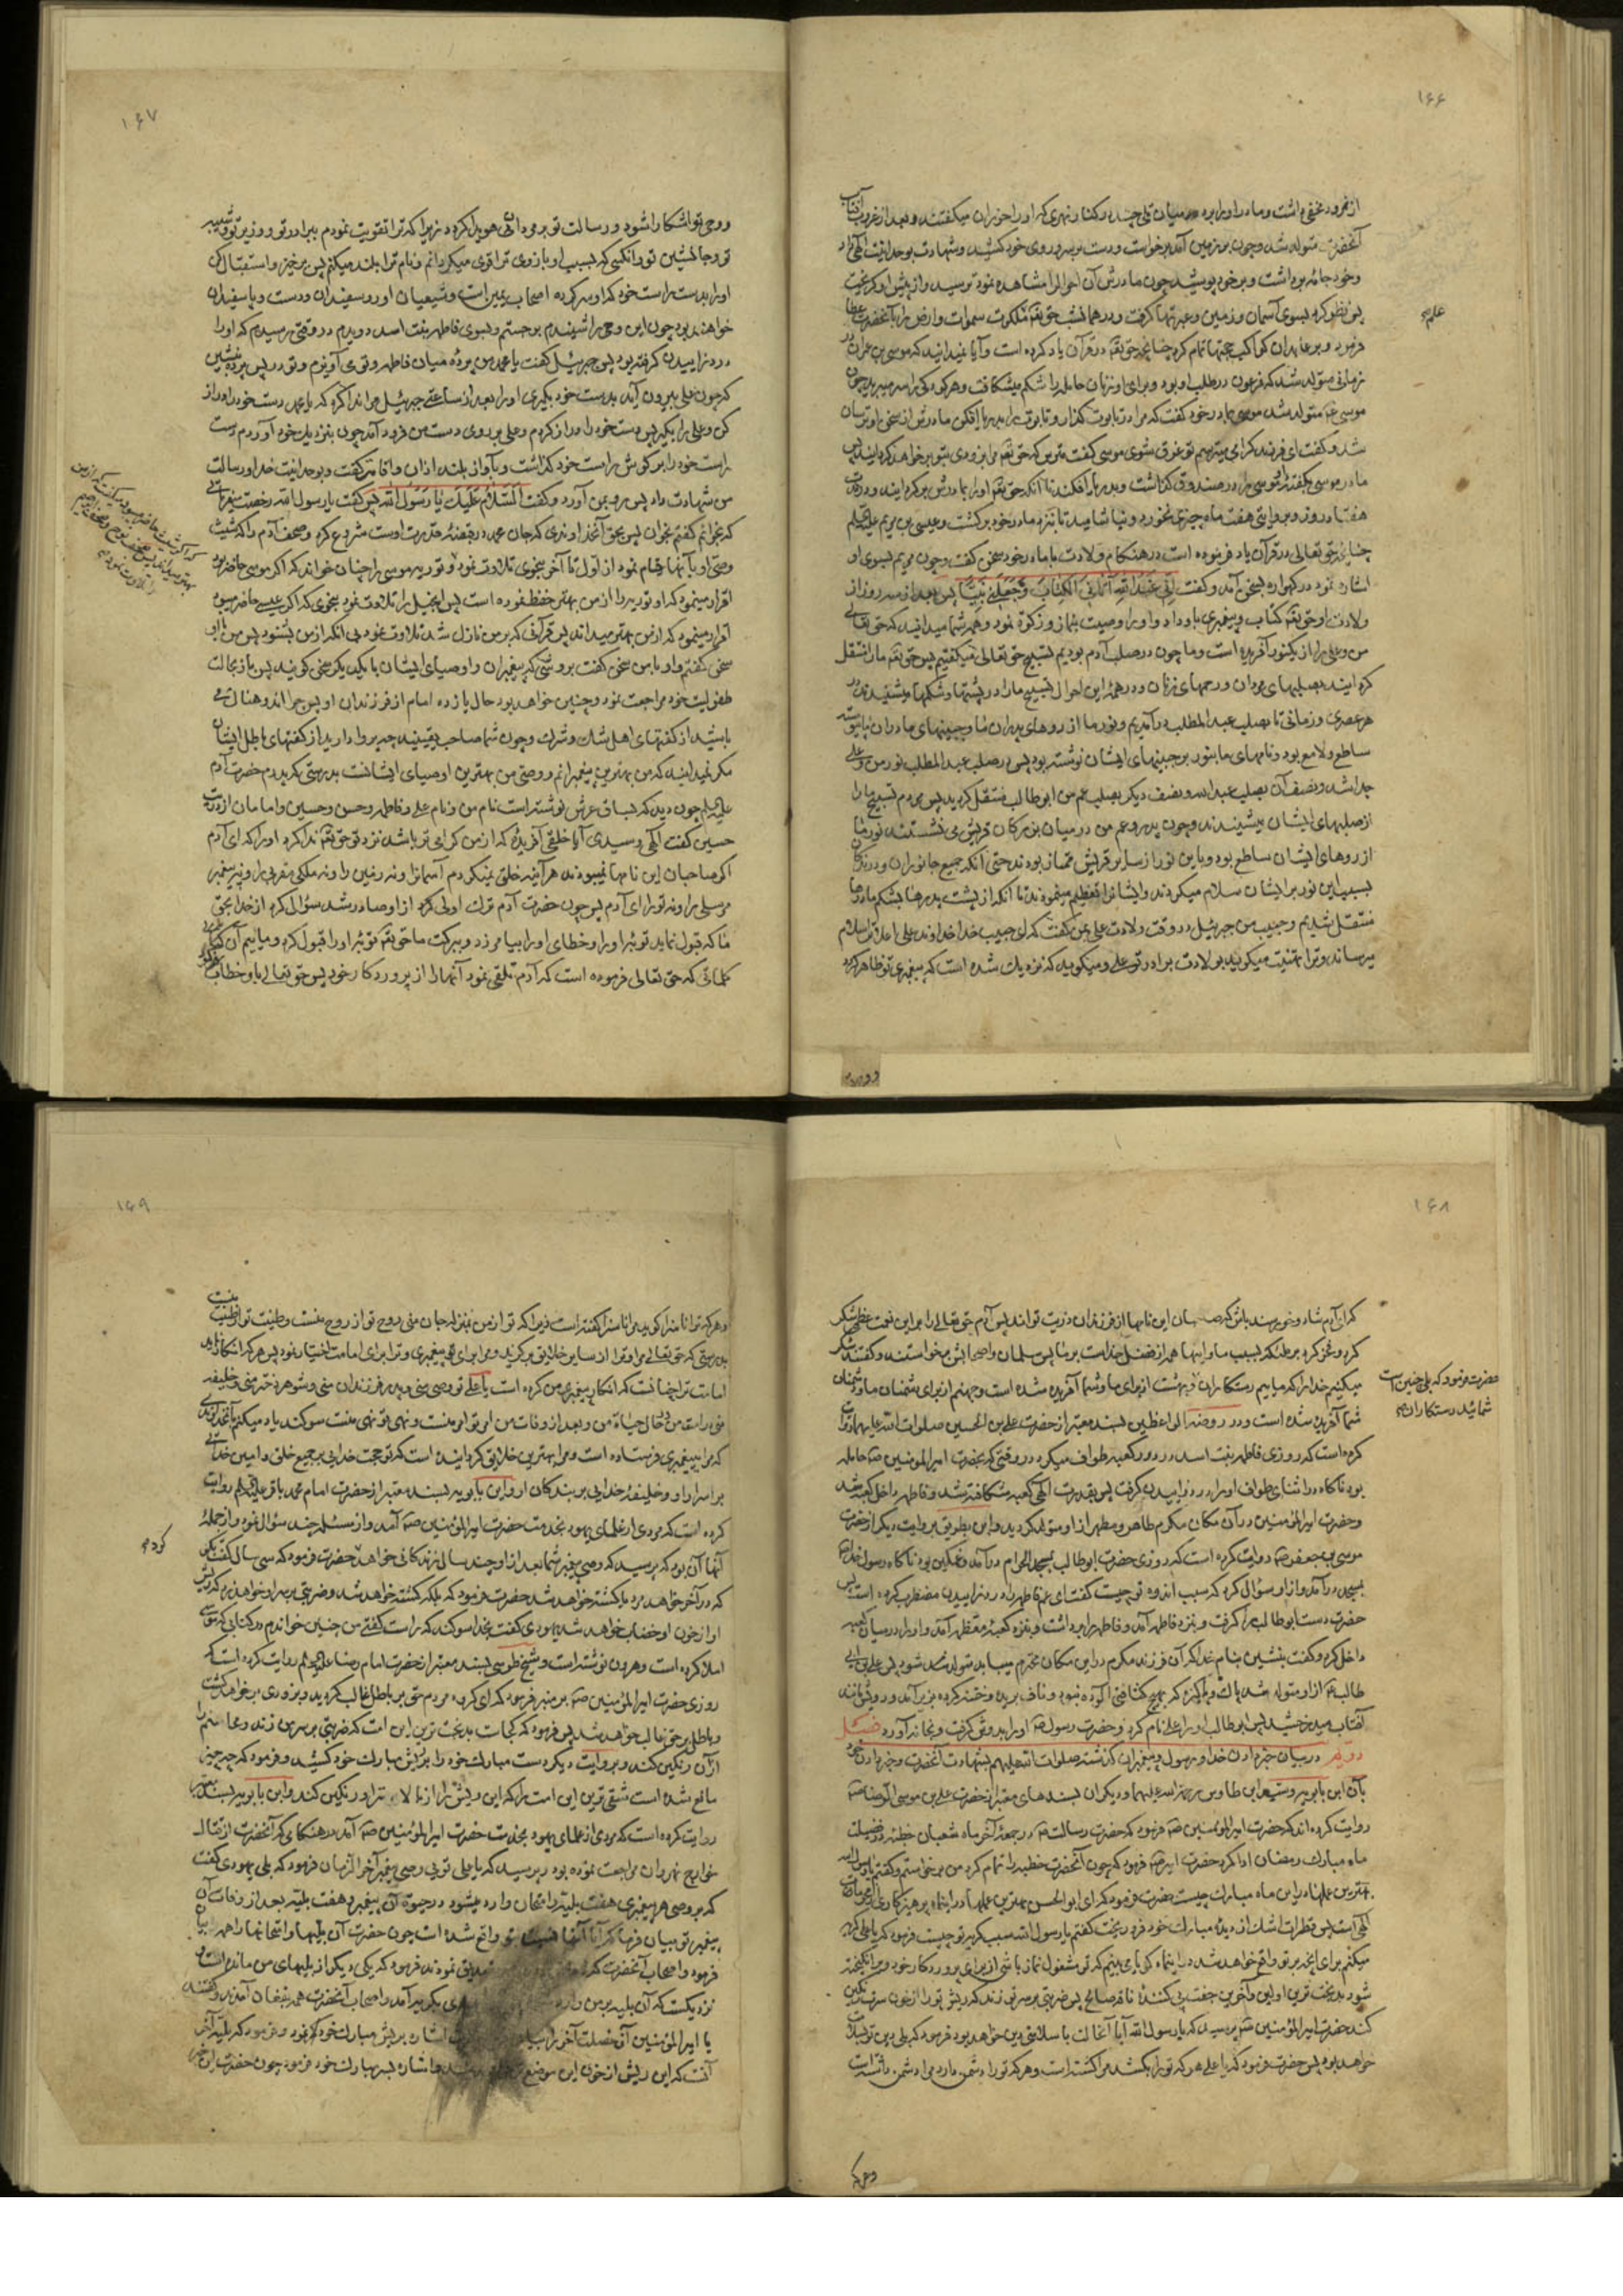 ۱۶۶
از نمرود مخفی داشت و مادر او را برد میان تلی چند در کنار نهری که او را حوران میگفتند و بعد از غروب آفتاب
آنحضرت متولد شد و چون بر زمین آمد برخواست و دست بر سر و روی خود کشید و شهادت بوحدانیت الهی داد
و خود جامه برداشت و بر خود پوشید چون مادرش آن احوال را مشاهده نمود ترسید و از پیش او گریخت
پس نظر کرد بسوی آسمان و زمین و عبرتها گرفت و در همان شب حق تعه ملکوت سموات و ارض را بآنحضرت عطا
فرمود و بر عابدان کواکب حجتها تمام کرد چنانچه حق تعه در قرآن یاد کرده است و آیا نمیدانید که موسی بن عمران در
زمانی متولد شد که فرعون در طلب او بود و برای او زنان حامله را شکم میشکافت و هر کودکی را سر میبرید چون
موسی ع متولد شد موسی بمادر خود گفت که مرا در تابوت گذار و تابوت را بدریا افکن مادرش از سخن او ترسان
شد و گفت ای فرزند گرامی میترسم تو غرق شوی موسی گفت مترس که حق تعه مرا بزودی بتو بر خواهد گردانید پس
مادر موسی بگفتهٔ موسی را در صندوق گذاشت و بدریا افکند تا آنکه حق تعه او را بمادرش بر گردانید و در مدت
هفتاد روز و بروایتی هفت ماه چیزی نخورد و نیاشامید تا بنزد مادر خود برگشت و عیسی بن مریم علیه السلم
چنانچه حق تعالی در قرآن یاد فرموده است در هنگام ولادت با مادر خود سخن گفت و چون مریم بسوی او
اشاره نمود در گهواره بسخن آمد و گفت اِنّی عَبْدُ اللهِ آتانِیَ الْکِتابَ وَجَعَلَنی نَبِیّاً پس بعد از سه روز از
ولادت او حق تعه کتاب و پیغمبری باو داد و او را وصیت بنماز و زکوة نمود و همه شما میدانید که حق تعالی
من و علی را از یکنور آفریده است و ما چون در صلب آدم بودیم تسبیح حق تعالی میگفتیم پس حق تعه ما را منتقل
گردانید بصلبهای مردان و رحمهای زنان و در همه این احوال تسبیح ما را در پشتها و شکمها میشنیدند در
هر عصری و زمانی تا بصلب عبد المطلب در آمدیم و نور ما از روهای پدران ما و جبینهای مادران ما پیوسته
ساطع و لامع بود و نامهای ما بنور بر جبینهای ایشان نوشته بود پس در صلب عبد المطلب نور من و علی
جدا شد و نصف آن بصلب عبد الله و نصف دیگر بصلب عم من ابو طالب منتقل گردید پس مردم تسبیح ما را
از صلبهای ایشان میشنیدند و چون پدر و عم من در میان بزرگان قریش می نشستند نور ما
از روهای ایشان ساطع بود و باین نور از سایر قریش ممتاز بودند حتی آنکه جمیع جانوران و درندگان
بسبب این نور بر ایشان سلام میکردند و ایشانرا تعظیم مینمودند تا آنکه از پشت پدرها بشکم مادرها
منتقل شدیم و حبیب من جبرئیل در وقت ولادت علی بمن گفت که ای حبیب خدا خداوند علی اعلا ترا سلام
میرساند و ترا تهنیت میگوید بولادت برادر تو علی و میگوید که نزدیک شده است که پیغمبری تو ظاهر گردد
علم
۱۶۷
و وحی تو اشکارا شود و رسالت تو بر مردمان هویدا گردد زیرا که ترا تقویت نمودم ببرادر تو و وزیر تو و شبیه
تو و جانشین تو و انکسی که بسبب او بازوی ترا قوی میگردانم و نام ترا بلند میکنم پس برخیز و استقبال کن
او را بدست راست خود که او سر کردهٔ اصحاب یمین است و شیعیان او رو سفیدان و دست و پا سفیدان
خواهند بود چون این وحی را شنیدم برجستم و بسوی فاطمه بنت اسد دویدم در وقتی رسیدم که او را
درد زاییدن گرفته بود پس جبرئیل گفت یا محمد من پردهٔ میان فاطمه و تو می آویزم و تو در پس پرده بنشین
که چون علی بیرون آید بدست خود بگیری او را بعد از ساعتی جبرئیل مرا ندا کرد که یا محمد دست خود را دراز
کن و علی را بگیر پس دست خود را دراز کردم و علی بر روی دست من فرود آمد چون بنزدیک خود آوردم دست
راست خود را بر گوش راست خود گذاشت و بآواز بلند اذان و اقامت گفت و بوحدانیت خدا و رسالت
من شهادت داد پس رو بمن آورد و گفت اَلسَّلامُ عَلَیْکَ یا رَسُولَ اللهِ پس گفت یا رسول الله رخصت میفرمائی
که بخوانم گفتم بخوان پس بحق آنخداوندی که جان محمد در قبضهٔ قدرت اوست شروع کرد و صحف آدم را که شیث
وصی او بآنها قیام نمود از اول تا آخر بنحوی تلاوت نمود و توریه موسی را چنان خواند که اگر موسی حاضر بود
اقرار مینمود که او توریه را از من بهتر حفظ نموده است پس انجیل را تلاوت نمود بنحوی که اگر عیسی حاضر میبود
اقرار مینمود که از من بهتر میداند پس قرآنی که بر من نازل شد تلاوت نمود بی آنکه از من بشنود پس من با او
سخن گفتم و او با من سخن گفت بروشی که پیغمبران و اوصیای ایشان با یکدیگر سخن گویند پس باز بحالت
طفولیت خود مراجعت نمود و چنین خواهد بود حال یازده امام از فرزندان او پس چرا اندوهناک می
باشید از گفتهای اهل شک و شرک و چون شما صاحب یقینید چه پروا دارید از گفتهای باطل ایشان
مگر نمیدانید که من بهترین پیغمبرانم و وصی من بهترین اوصیای ایشانست بدرستی که پدرم حضرت آدم
علیه السلم چون دید که بساق عرش نوشته است نام من و نام علی و فاطمه و حسن و حسین و امامان از ذریت
حسین گفت الهی و سیدی آیا خلقی آفریدهٔ که از من گرامی تر باشد نزد تو حق تعه ندا کرد او را که ای آدم
اگر صاحبان این نامها نمیبودند هر آینه خلق نمیکردم آسمانرا و نه زمین را و نه ملکی مقرب را و نه پیغمبر
مرسلی را و نه تو را ای آدم پس چون حضرت آدم ترک اولی کرد از او صادر شد سؤال کرد از خدا بحق
ما که قبول نماید توبه او را و خطای او را بیامرزد و ببرکت ما حق تعه توبه او را قبول کرد و ماییم آن
کلماتی که حق تعالی فرموده است که آدم تلقی نمود آنها را از پروردگار خود پس حق تعالی باو خطاب
۱۶۸
که ای آدم شاد و خوش بینش باش که صاحبان این نامها از فرزندان و ذریت تواند پس آدم حق تعالی را بر این نعمت عظمی شکر
کرد و فخر کرد بر ملائکه بسبب ما و اینها همه از فضل خداست بر ما پس سلمان و اصحابش برخواستند و گفتند شکر
میکنیم خدا را که ماییم رستگاران و بهشت از برای ما و شما آفریده شده است و جهنم از برای دشمنان ما و دشمنان
شما آفریده شده است و در روضة الواعظین بسند معتبر از حضرت علی بن الحسین صلوات الله علیهما روایت
کرده است که روزی فاطمه بنت اسد در دور کعبه طواف میکرد در وقتی که بحضرت امیر المؤمنین ص حامله
بود ناگاه در اثنای طواف او را درد زاییدن گرفت پس بقدرت الهی کعبه شکافته شد و فاطمه داخل کعبه شد
و حضرت امیر المؤمنین در آن مکان مکرم طاهر و مطهر از او متولد گردید و ابن بطریق بروایت دیگر از حضرت
موسی بن جعفر ص روایت کرده است که روزی حضرت ابو طالب بمسجد الحرام در آمد و غمگین بود ناگاه رسول خدا ص
بمسجد در آمد و از او سؤال کرد که سبب اندوه تو چیست گفت ای عم فاطمه را درد زاییدن مضطرب کرده است پس
حضرت دست ابو طالب را گرفت و بنزد فاطمه آمد و فاطمه را برداشت و بنزد کعبهٔ معظمه آمد و او را در میان کعبه
داخل کرد و گفت بنشین بنام خدا که آن فرزند مکرم در این مکان محترم میباید متولد شود پس علی بن ابی
طالب ع از او متولد شد پاک و پاکیزه که بهیچ کثافتی آلوده نبود و ناف بریده و ختنه کرده بزیر آمد و رویش مانند
آفتاب میدرخشید پس ابو طالب او را علی نام کرد و حضرت رسول ص او را بدوش گرفت و بخانه آورد فصل
دویم در بیان خبر دادن خدا و رسول و پیغمبران گذشته صلوات الله علیهم بشهادت آنحضرت و خبر دادن خود
بآن ابن بابویه و سید ابن طاوس رحمة الله علیهما و دیگران بسندهای معتبر از حضرت علی بن موسی الرضا ص
روایت کرده اند که حضرت امیر المؤمنین ص فرمود که حضرت رسالت ص در جمعهٔ آخر ماه شعبان خطبه در فضیلت
ماه مبارک رمضان ادا کرد حضرت امیر ص فرمود که چون آنحضرت خطبه را تمام کرد من برخواستم و گفتم یا رسول الله
بهترین عملها در این ماه مبارک چیست حضرت فرمود که ای ابو الحسن بهترین عملها در اینماه پرهیزکاری از محرمات
الهی است پس قطرات اشک از دیدهٔ مبارک خود فرو ریخت گفتم یا رسول الله سبب گریه تو چیست فرمود که یا علی گریه
میکنم برای آنچه بر تو واقع خواهد شد در اینماه گویا می بینم که تو مشغول نماز باشی از برای پروردگار خود و برانگیخته
شود بدبخت ترین اولین و آخرین جفت پی کنندهٔ ناقه صالح پس ضربتی بر سر تو زند که ریش تو را از خون سرت رنگین
کند حضرت امیر المؤمنین ص پرسید که یا رسول الله آیا آنحالت با سلامتی دین خواهد بود فرمود که بلی دین تو سلامت
خواهد بود پس حضرت فرمود که یا علی هر که تو را بکشد مرا کشته است و هر که تو را دشمن دارد مرا دشمن داشته است
حضرت فرمود که بلی چنین است
شمائید رستگاران
۱۶۹
و هر که ترا ناسزا گوید مرا ناسزا گفته است زیرا که تو از من بمنزلهٔ جان منی روح تو از روح منست و طینت تو از طینت
بدرستی که حق تعالی مرا و ترا از سایر خلایق برگزید و مرا برای پیغمبری و ترا برای امامت اختیار نمود پس هر که انکار نماید
امامت ترا چنانست که انکار پیغمبری من کرده است یا علی تو وصی منی و پدر فرزندان منی و شوهر دختر منی و خلیفه
منی بر امت من در حال حیات من و بعد از وفات من امر تو امر منست و نهی تو نهی منست سوگند یاد میکنم بآنخداوندی
که مرا به پیغمبری فرستاده است و مرا بهترین خلایق گردانیده است که تو حجت خدایی بر جمیع خلق و امین خدایی
بر اسرار او و خلیفهٔ خدایی بر بندگان او و ابن بابویه بسند معتبر از حضرت امام محمد باقر علیه السلم روایت
کرده است که مردی از علمای یهود بخدمت حضرت امیر المؤمنین ص آمد و از مسئله چند سؤال نمود و از جملهٔ
آنها آن بود که پرسید که وصی پیغمبر شما بعد از او چند سال زندگانی خواهد حضرت فرمود که سی سال گفت بگو
که در آخر خواهد مرد یا کشته خواهد شد حضرت فرمود که بلکه کشته خواهد شد و ضربتی بر سر او خواهند زد که ریش
او از خون او خضاب خواهد شد یهودی گفت بخدا سوگند که راست گفتی من چنین خواندم در کتابی که موسی
املا کرده است و هرون نوشته است و شیخ طوسی بسند معتبر از حضرت امام رضا علیه السلم روایت کرده است که
روزی حضرت امیر المؤمنین ص بر منبر فرمود که ای گروه مردم حق بر باطل غالب گردید و بزودی بر خواهد گشت
و باطل بر حق غالب خواهد شد پس فرمود که کجاست بدبخت ترین این امت که ضربتی بر سر من زند و محاسنم را
از آن رنگین کند و بروایت دیگر دست مبارک خود را بر ریش مبارک خود کشید و فرمود که چه چیز
مانع شده است شقی ترین این امت را که این ریش را از بالا تر او رنگین کند و ابن بابویه بسند معتبر
روایت کرده است که مردی از علمای یهود بخدمت حضرت امیر المؤمنین ص آمد در هنگامی که آنحضرت از قتال
خوارج نهروان مراجعت نموده بود پرسید که یا علی تویی وصی پیغمبر آخر الزمان فرمود که بلی یهودی گفت
که بر وصی هر پیغمبری هفت بلیه و امتحان وارد میشود در حیوة آن پیغمبر و هفت بلیه بعد از وفات آن
پیغمبر تو بیان فرما که آیا آنها نسبت بتو واقع شده است چون حضرت آن بلیها و امتحانها را همه بیان
فرمود و اصحاب آنحضرت تصدیق نمودند فرمود که یکی دیگر از بلیهای من مانده است و
نزدیکست که آن بلیه بر من وارد بگریه آمد و اصحاب آنحضرت همه بفغان آمدند و گفتند
یا امیر المؤمنین آن خصلت آخر را بیان اشاره بریش مبارک خود نمود و فرمود که بلیه آخر
آنست که این ریش از خون این موضع اشاره بسر مبارک خود فرمود چون حضرت این خبر
کرد